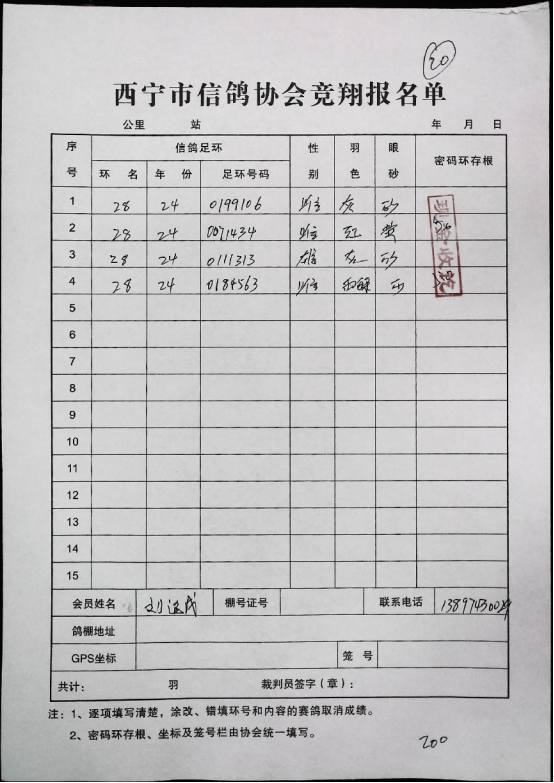 20
西宁市信鸽协会竞翔报名单
公里 站 年 月 日
序号 信鸽足环 性别 羽色 眼砂 密码环存根
环名 年份 足环号码
1 28 24 0199106 雌 灰 砂
2 28 24 0071434 雌 红
3 28 24 0111313 雄 灰 砂
4 28 24 0184563 雌
现金收讫
5
6
7
8
9
10
11
12
13
14
15
会员姓名 棚号证号 联系电话
鸽棚地址
GPS坐标 笼号
共计: 羽 裁判员签字(章):
注:1、逐项填写清楚,涂改、错填环号和内容的赛鸽取消成绩。
2、密码环存根、坐标及笼号栏由协会统一填写。
200